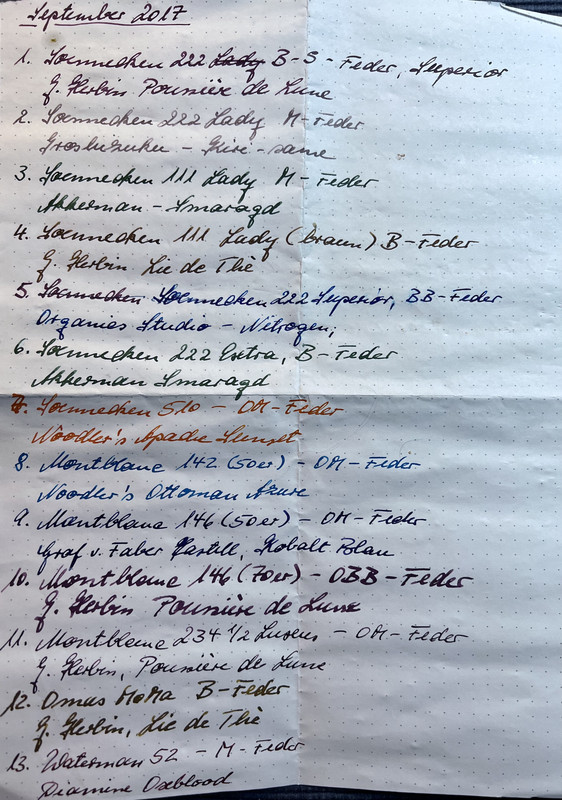 September 2017
1. Soennecken 222 Lady B-S-Feder, Superior
J. Herbin Poussière de Lune
2. Soennecken 222 Lady M-Feder
Iroshizuku - Kiri-same
3. Soennecken 111 Lady M-Feder
Akkerman - Smaragd
4. Soennecken 111 Lady (braun) B-Feder
J. Herbin Lie de Thé
5. Soennecken Soennecken 222 Superior, BB-Feder
Organics Studio - Nitrogen;
6. Soennecken 222 Extra, B-Feder
Akkerman Smaragd
7. Soennecken 510 - OM-Feder
Noodler's Apache Sunset
8. Montblanc 142 (50er) - OM-Feder
Noodler's Ottoman Azure
9. Montblanc 146 (50er) - OM-Feder
Graf v. Faber Castell, Kobalt Blau
10. Montblanc 146 (70er) - OBB-Feder
J. Herbin Poussière de Lune
11. Montblanc 234 1/2 Luxus - OM-Feder
J. Herbin, Poussière de Lune
12. Omas MoMa B-Feder
J. Herbin, Lie de Thé
13. Waterman 52 - M-Feder
Diamine Oxblood